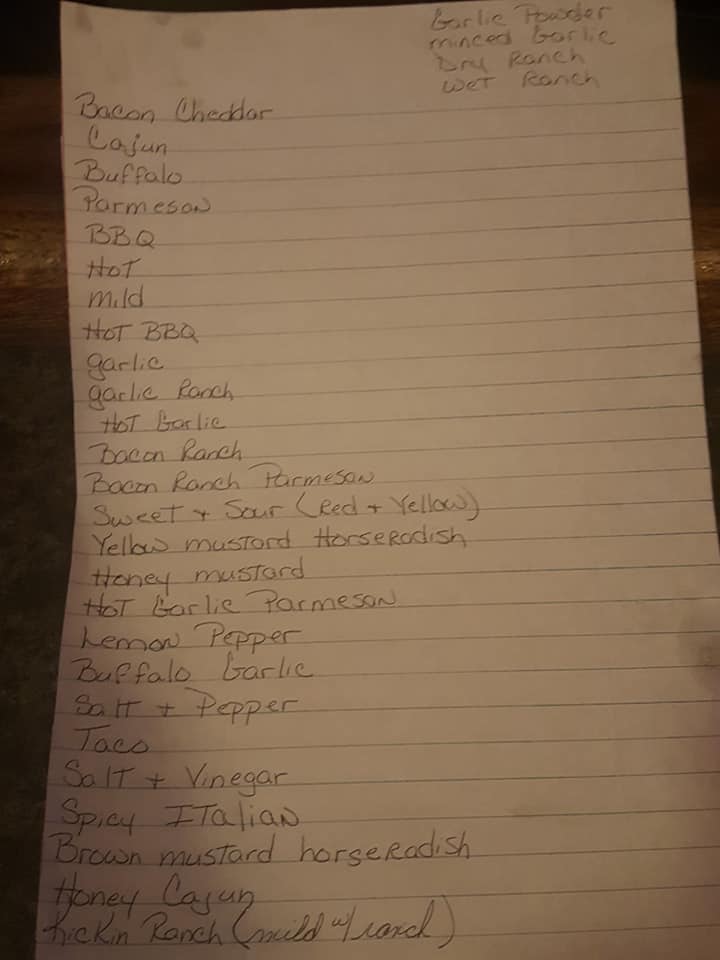 Garlic Powder
minced Garlic
Dry Ranch
Wet Ranch
Bacon Cheddar
Cajun
Buffalo
Parmeson
BBQ
HoT
mild
HoT BBQ
garlic
garlic Ranch
HoT Garlic
Bacon Ranch
Bacon Ranch Parmeson
Sweet + Sour (Red + Yellow)
Yellow mustard Horseradish
Honey mustard
HoT Garlic Parmeson
Lemon Pepper
Buffalo Garlic
Salt + Pepper
Taco
Salt + Vinegar
Spicy ITalian
Brown mustard horseradish
Honey Cajun
Kickin Ranch (mild w/ranch)